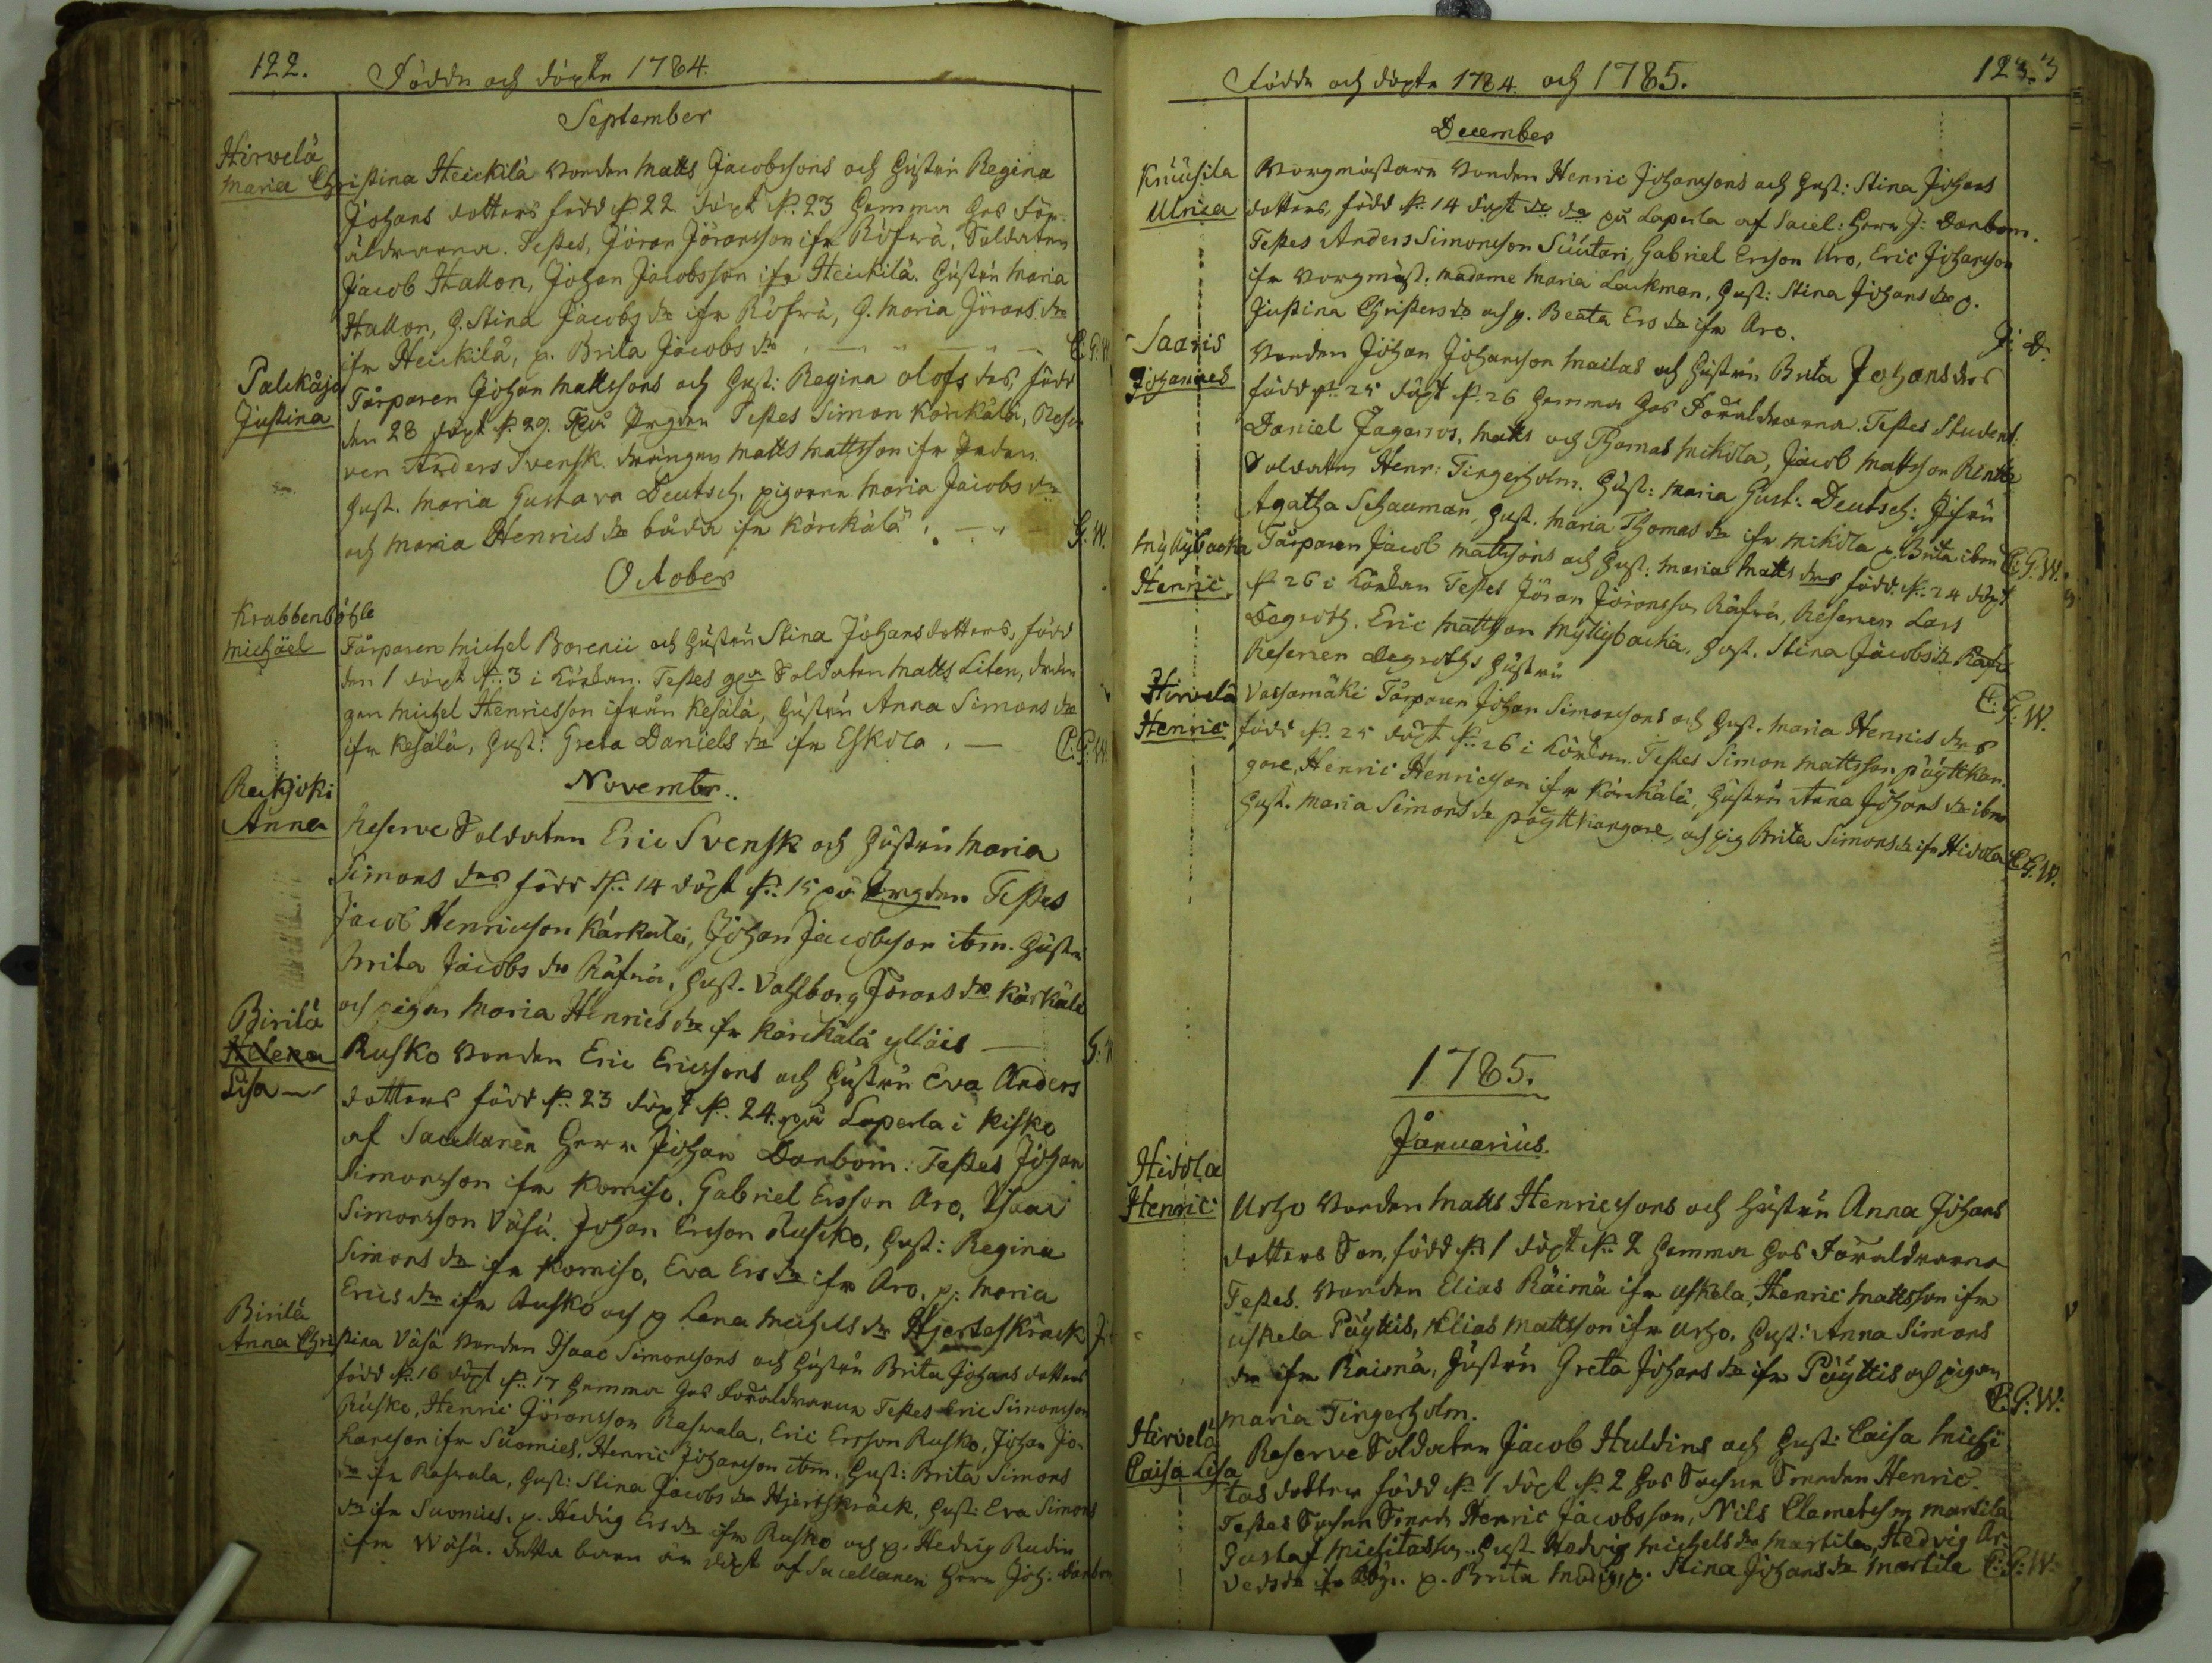 122.
Födde och döpte 1784.
September
Hirvelä
Maria Christina Heickilä Bonden Matts Jacobssons och Hustru Regina
Johans dotters född d. 22 döpt d. 23 hemma hos för-
äldrarna. Testes, Jöran Jöransson ifr Röfvä, Soldaten
Jacob Hallon, Johan Jacobsson ifr Heickilä. Hustru Maria
Hallon, H. Stina Jacobs dr ifr Röfvä, H. Maria Jörans dr
ifr Heickilä, p. Brita Jacobs dr C. G. W.
Palikåja
Justina
Torparen Johan Mattssons och Hust: Regina Olofs drs, född
den 28 döpt d. 29. Testes Simon Kärckälä, Reser
ven Anders Svensk. drängen Matts Mattsson ifr
Hust. Maria Gustava Deutsch. pigorna Maria Jacobs dr
och Maria Henrics dr båda ifr Kärckälä. G. W.
October
Krabbenböhle
Michäel
Torparen Michel Borenii och Hustru Stina Johansdotters, född
den 1 döpt d. 3 i Körkan. Testes Soldaten Matts Liten, drän
gen Michel Henricsson ifrån Kesälä, Hustru Anna Simons dr
ifr Kesälä, Hust: Greta Daniels dr ifr Eskola. C. G. W.
November.
Reckjoki
Anna
Reserve Soldaten Eric Svensk och Hustru Maria
Simons drs född d. 14 döpt d. 15 på Testes
Jacob Henricsson Kärkelä, Johan Jacobsson ibm. Hustru
Brita Jacobs dr Räfvä, Hust. Valborg Jörans dr Kärkälä
och pigan Maria Henrics dr ifr Kärckälä ylläis G. W.
Birilä
Helena
Lisa
Rusko Bonden Eric Ericssons och Hustru Eva Anders
dotters född d. 23 döpt d. 24. på Laperla i Kisko
af Sacellanen Herr Johan Danbom: Testes Johan
Simonsson ifr Komiso, Gabriel Ersson Aro, Isaac
Simonsson Väsä, Johan Ersson Rusko, Hust: Regina
Simons dr ifr Komiso, Eva Ers dr ifr Aro, p. Maria
Erics dr ifr Rusko och p Lena Michels dr Hjerteskräck
Birilä
Anna Christina Väsä Bonden Isaac Simonssons och Hustru Brita Johans dotters
född d. 16 döpt d. 17 hemma hos Föräldrarna Testes Eric Simonsson
Rusko, Henric Jöransson Rasvala, Eric Ersson Rusko, Johan Jo-
hansson ifr Suomies, Henric Johansson ibm. Hust: Brita Simons
dr ifr Rasvala, Hust: Stina Jacobs dr Hjertskräck, Hust: Eva Simons
dr ifr Suomies. p. Hedvig Ers dr ifr Rusko och p. Hedvig Rudin
ifr Wäsä. detta barn är döpt af Sacellanen Herr Joh: Danbom
Födde och döpte 1784. och 1785.
123.
December
Knuusila
Ulrica
Borgmästare Bonden Henric Johanssons och Hust: Stina Johans
dotters, född d. 14 döpt på Laperla af Sacel: Herr J: Danbom.
Testes Anders Simonsson Suutari, Gabriel Ersson Aro, Eric Johansson
ifr Borgmäst. Madame Maria Lackman, Hust: Stina Johans dr
Justina Christers dr och p. Beata Ers dr ifr Aro. J: D:
Saaris
Johannes
Bonden Johan Johansson Mailas och Hustru Brita Johans drs
född d. 25 döpt d. 26 hemma hos Föräldrarna. Testes Student:
Daniel Fagerros, Matts och Thomas Mikola, Jacob Mattsson
Soldaten Henr: Tingerholm. Hust: Maria Gust: Deutsch:
Agatha Schauman, Hust. Maria Thomas dr ifr Mikola p. Brita ibm C. G. W.
Myllybacka
Henric
Torparen Jacob Mattsons och Hust: Maria Matts drs född d. 24 döpt
d 26 i Körkan Testes Jöran Jöransson Räfvä, Reserven Lars
Degroth. Eric Mattsson Myllybacka. Hust. Stina Jacobs dr
Reserven Degroths Hustru C. G. W.
Hirvelä
Henric
Vassamäki Torparen Johan Simonssons och Hust. Maria Henrics drs
född d. 25 döpt d. 26 i Körkan. Testes Simon Mattsson Päyttkan-
gare, Henric Henricsson ifr Kärckälä, Hustru Anna Johans dr ibm
Hust. Maria Simons dr Päyttkangare, och pig Brita Simons dr ifr Hidola C. G. W.
1785.
Januarius.
Hidola
Henric
Urho Bonden Matts Henricssons och Hustru Anna Johans
dotters Son, född d. 1 döpt d. 2 hemma hos Föräldrarna
Testes. Bonden Elias Räimä ifr Uskela, Henric Mattsson ifr
Uskela Päyttis, Elias Mattsson ifr Urho, Hust: Anna Simons
dr ifr Raimä, Hustru Greta Johans dr ifr Päyttis och pigan
Maria Tingerholm. C. G: W:
Hirvelä
Caisa Lisa
Reserve Soldaten Jacob Huldins och Hust: Caisa Michi
tas dotter född d. 1 döpt d. 2 hos Sochne Smeden Henric.
Testes Sochne Smeden Henric Jacobsson, Nils Clemetsson Martila
Gustaf Michitasson. Hust Hedvig Michels dr Martila, Hedvig Ar-
veds dr p. Brita p. Stina Johans dr Martila C. G: W.